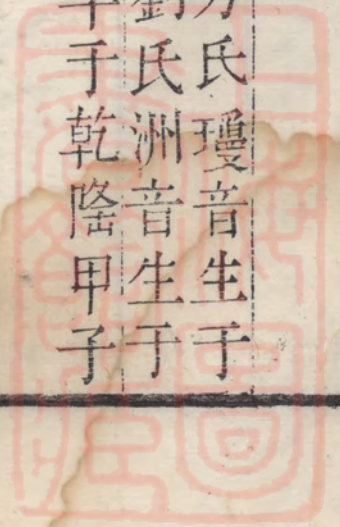 氏瓊音生于
劉氏洲音生于
于乾隆甲子